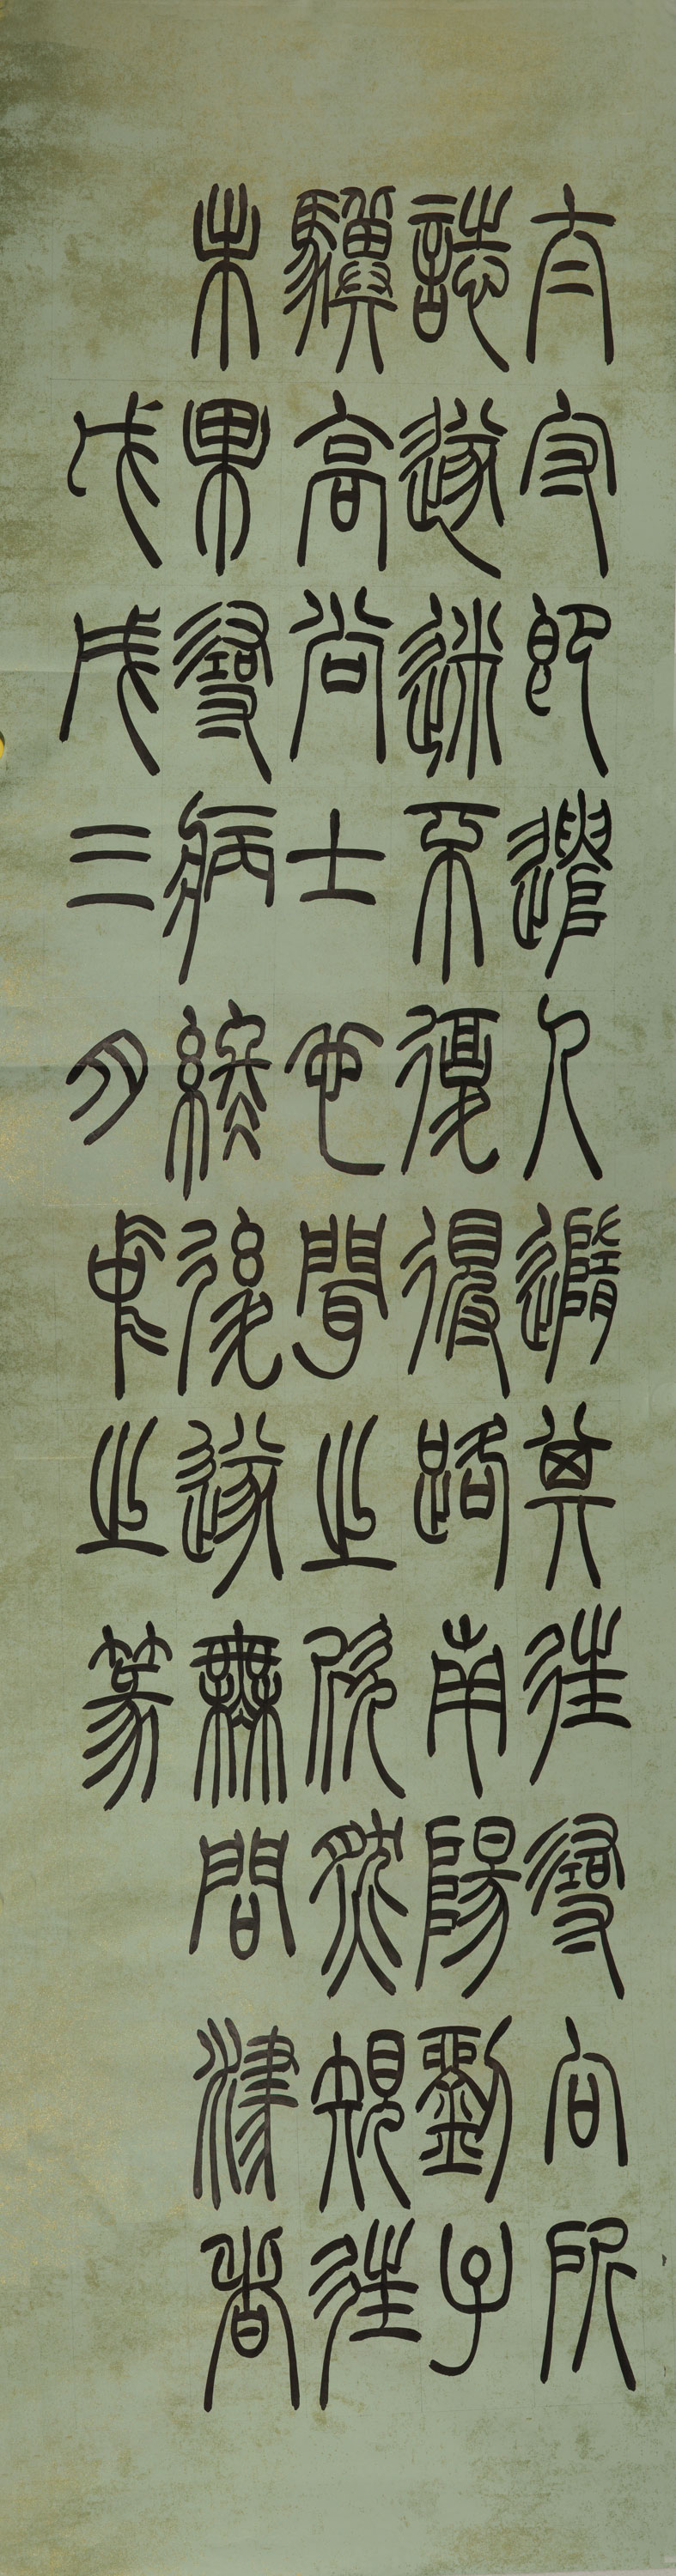 太守即遣人隨其往尋向所
誌遂迷不復得路南陽劉子
驥高尚士也聞之欣然規往
未果尋病終後遂無問津者
戊戌三月之篆